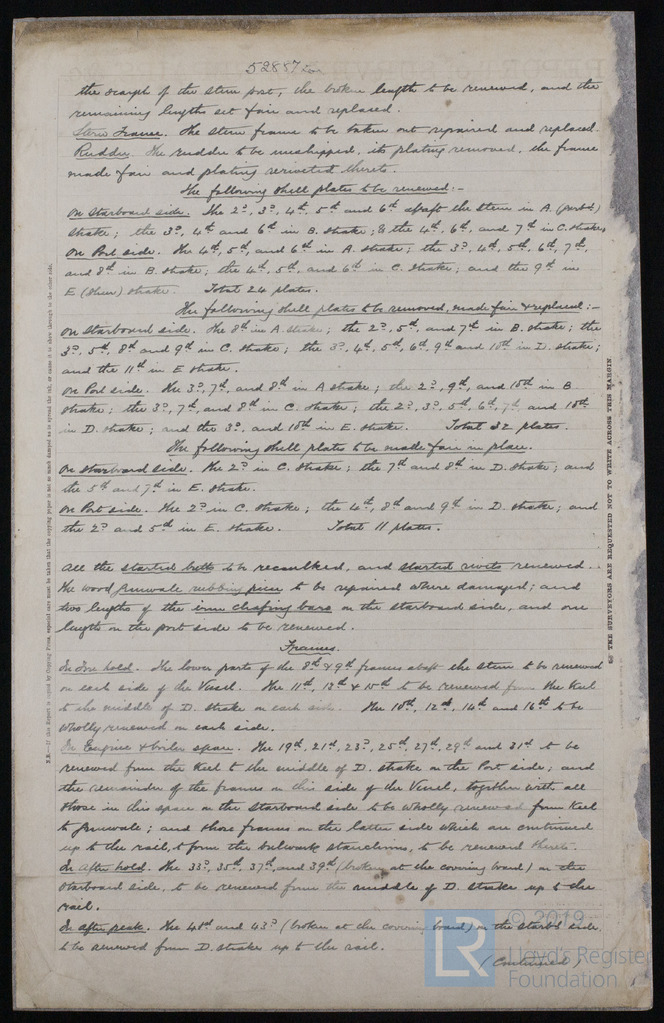 52887 Lon
the scarph of the stem post, the broken length to be renewed, and the
remaining lengths set fair and replaced.
Stern Frame. The stern frame to be taken out repaired and replaced.
Rudder. The rudder to be unshipped, its plating removed, the frame
made fair and plating rerivetted thereto.
The following shell plates to be renewed:-
On Starboard side. The 2d, 3d, 4th, 5th and 6th abaft the stem in A.
strake; the 3d, 4th and 6th in B. strake; & the 4th, 6th, and 7th in C. strake,
On Port side. The 4th, 5th, and 6th in A. strake; the 3d, 4th, 5th, 6th, 7th,
and 8th in B. strake; the 4th, 5th, and 6th in C. strake; and the 9th in
E (sheer) strake. Total 24 plates.
The following shell plates to be removed, made fair & replaced:-
On Starboard side. The 8th in A. strake; the 2d, 5th, and 7th in B. strake; the
3d, 5th, 8th and 9th in C. strake; the 3d, 4th, 5th, 6th, 9th and 10th in D. strake;
and the 11th in E strake.
On Port side. The 3d, 7th, and 8th in A strake; the 2d, 9th, and 10th in B
strake; the 3d, 7th, and 8th in C. strake; the 2d, 3d, 5th, 6th, 7th and 10th
in D. strake; and the 3d, and 10th in E. strake. Total 32 plates.
The following shell plates to be made fair in place.
On Starboard side. The 2d in C. strake; the 7th and 8th in D. strake; and
the 5th and 7th in E. strake.
On Port side. The 2d in C. strake; the 4th, 8th and 9th in D. strake; and
the 2d and 5th in E. strake. Total 11 plates.
All the started butts to be recaulked, and started rivets renewed.
The wood gunwale rubbing piece to be repaired where damaged; and
two lengths of the iron chafing bars on the starboard side, and one
length on the port side to be renewed.
Frames.
In Fore hold. The lower parts of the 8th & 9th frames abaft the stem to be renewed
on each side of the Vessel. The 11th, 13th & 15th to be renewed from the Keel
to the middle of D. strake on each side. The 10th, 12th, 14th and 16th to be
wholly renewed on each side.
In Engine & boiler space. The 19th, 21st, 23d, 25th, 27th, 29th and 31st to be
renewed from the Keel to the middle of D. strake on the Port side; and
the remainder of the frames on this side of the Vessel, together with all
those in this space on the starboard side to be wholly renewed from Keel
to gunwale; and those frames on the latter side which are continued
up to the rail, to form the bulwark stanchions, to be renewed thereto.
In After hold. The 33d, 35th, 37th, and 39th (broken at the covering board) on the
starboard side, to be renewed from the middle of D. strake up to the
rail.
In after peak. The 41st and 43d (broken at the covering board) on the starbd side
to be renewed from D. strake up to the rail.
(Continued)
N.B.—If this Report is copied by Copying Press, especial care must be taken that the copying paper is not so much damped as to spread the ink, or cause it to show through to the other side.
THE SURVEYORS ARE REQUESTED NOT TO WRITE ACROSS THIS MARGIN.
LR
© 2019
Lloyd's Register
Foundation